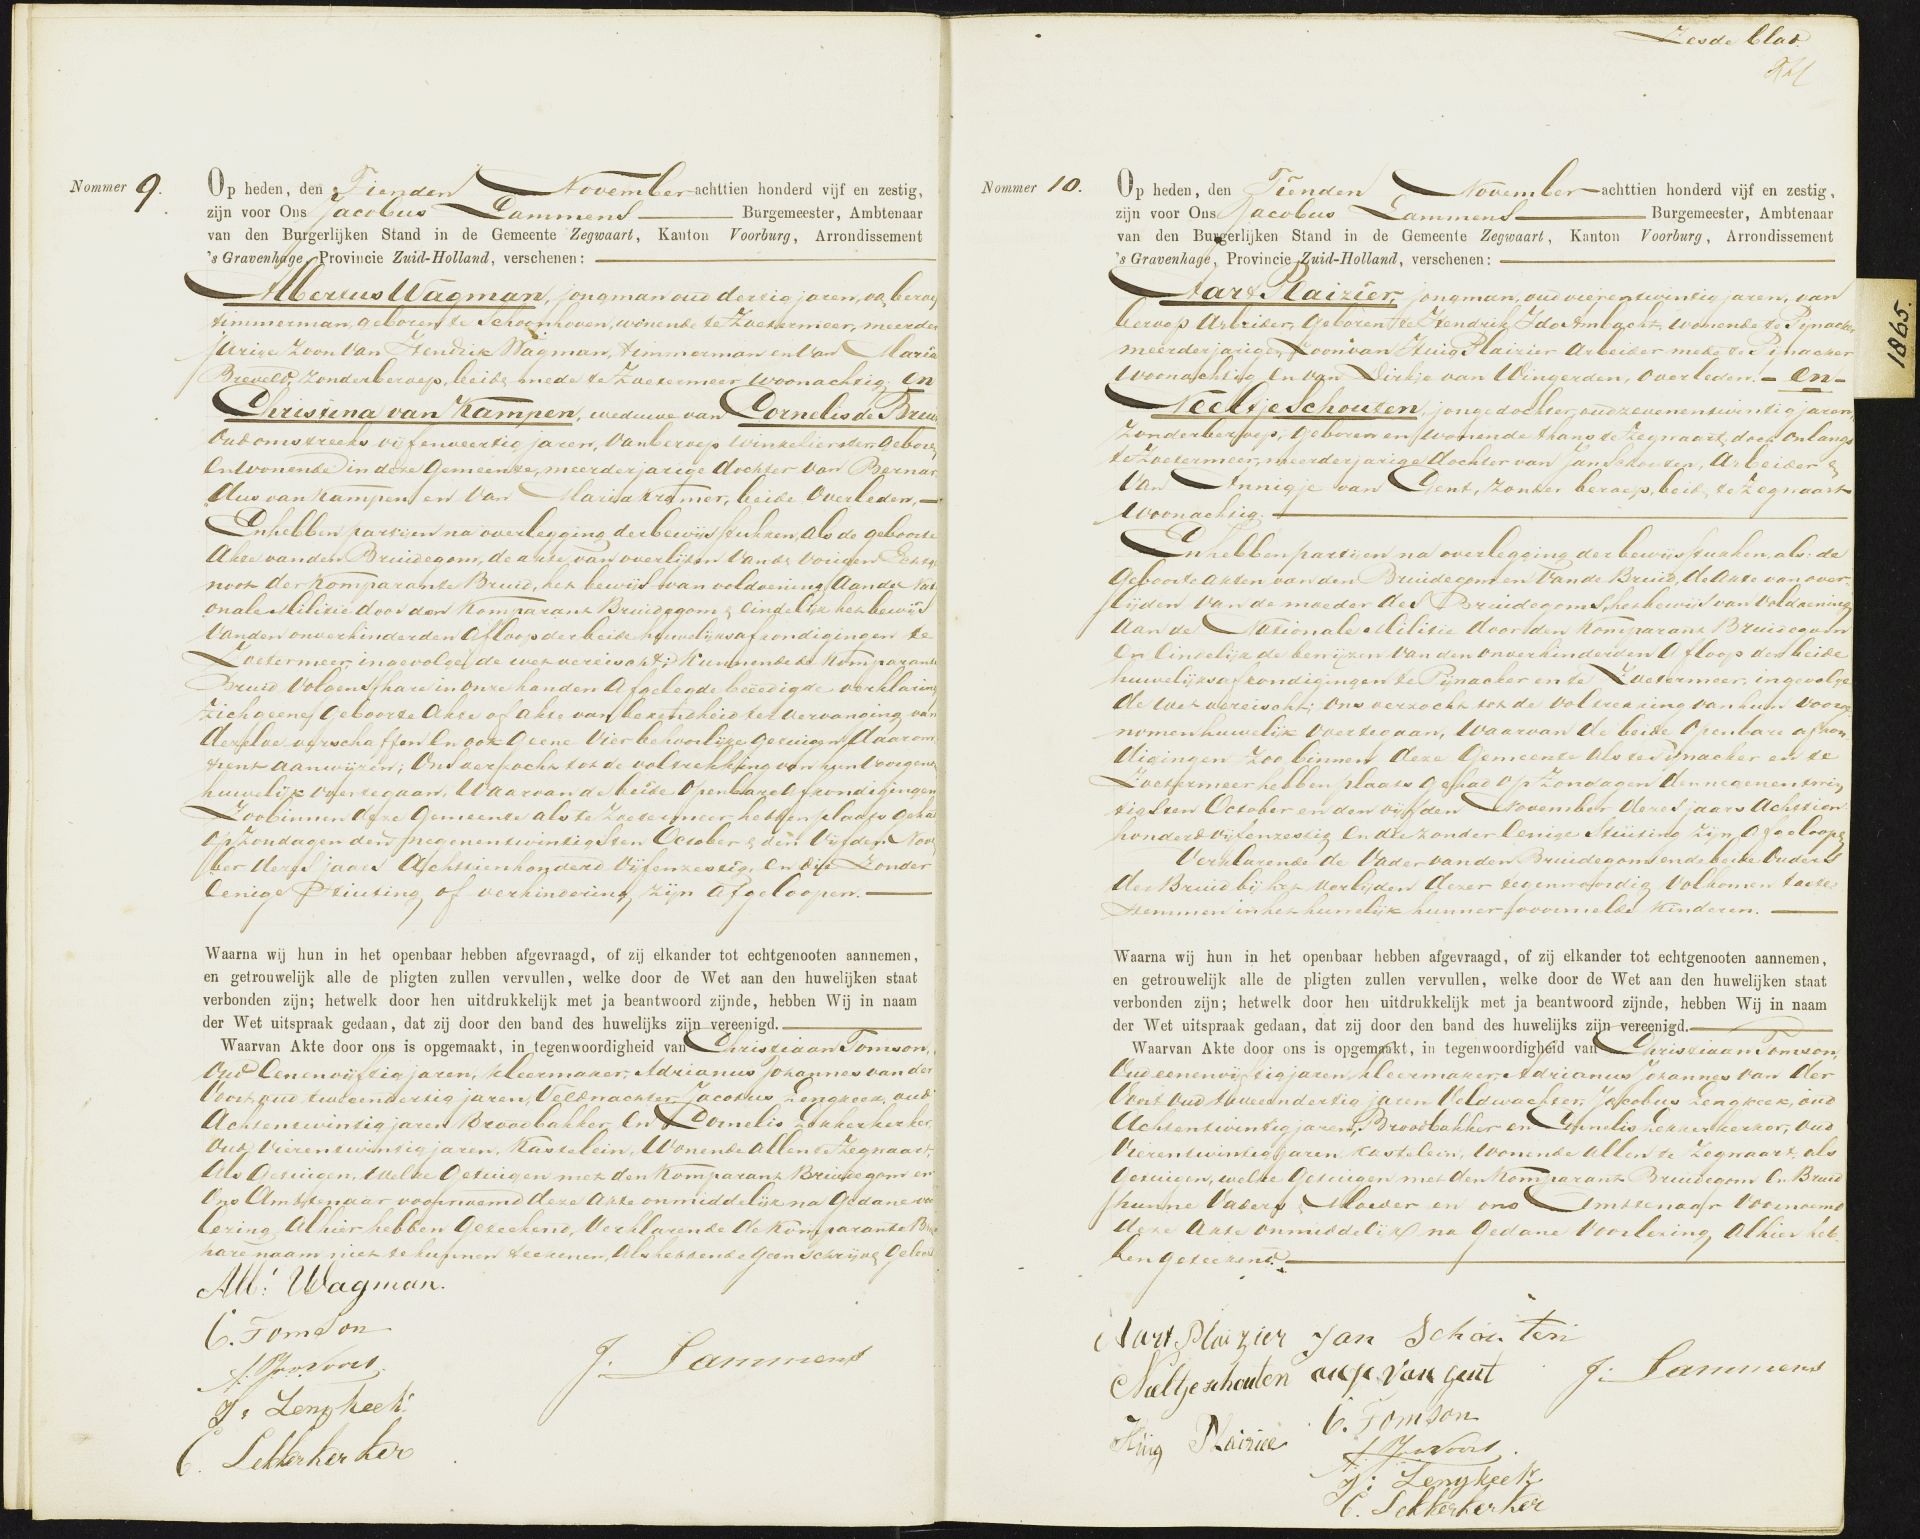 Nommer 9.
Op heden, den Tienden November achttien honderd vijf en zestig,
zijn voor Ons Jacobus Lammens Burgemeester, Ambtenaar
van den Burgerlijken Stand in de Gemeente Zegwaart, Kanton Voorburg, Arrondissement
's Gravenhage, Provincie Zuid-Holland, verschenen:
Albertus Wagman, jongman oud dertig jaren, van beroep
timmerman, geboren te Schoonhoven, wonende te Zoetermeer, meerder
jarige Zoon van Hendrik Wagman, timmerman en van Maria
Breveld, zonder beroep, beide mede te Zoetermeer woonachtig. en
Christina van Kampen, weduwe van Cornelis de Bruin
oud omstreeks vijfenveertig jaren, van beroep winkelierster, geboren
en wonende in deze Gemeente, meerderjarige dochter van Bernar
dus van Kampen en van Maria Kramer, beide overleden,
En hebben partijen na overlegging der bewijsstukken, als de geboorte
Akte van den Bruidegom, de akte van overlijden van de vorigen Echtge
noot der Komparante Bruid, het bewijs van voldoening aan de Nati
onale Militie door den Komparant Bruidegom & eindelijk het bewijs
van den onverhinderden afloop der beide huwelijksafkondigingen te
Zoetermeer, ingevolge de wet vereischt; kunnende de Komparante
Bruid volgens hare in onze handen afgelegde beëedigde verklaring
zich geene Geboorte Akte of akte van bekendheid ter vervanging van
dezelve verschaffen en ook geene vier behoorlijke getuigen daarom
trent aanwijzen; Ons verzocht tot de voltrekking van hun voorgen.
huwelijk overtegaan, Waarvan de beide openbare afkondigingen
Zoo binnen deze Gemeente als te Zoetermeer hebben plaats gehad
op Zondagen den negenentwintigsten October & den vijfden Novem
ber dezes jaars Achttienhonderd vijfenzestig, en die zonder
eenige stuiting of verhindering zijn afgeloopen.
Waarna wij hun in het openbaar hebben afgevraagd, of zij elkander tot echtgenooten aannemen,
en getrouwelijk alle de pligten zullen vervullen, welke door de Wet aan den huwelijken staat
verbonden zijn; hetwelk door hen uitdrukkelijk met ja beantwoord zijnde, hebben Wij in naam
der Wet uitspraak gedaan, dat zij door den band des huwelijks zijn vereenigd.
Waarvan Akte door ons is opgemaakt, in tegenwoordigheid van Christiaan Tomson,
oud eenenvijftig jaren, kleermaker, Adrianus Johannes van der
Voort, oud tweeendertig jaren, Veldwachter, Jacobus Lengkeek, oud
Achtentwintig jaren Broodbakker, en Cornelis Lekkerkerker,
oud vierentwintig jaren, kastelein, wonende allen te Zegwaart,
als Getuigen, welke Getuigen met den Komparant Bruidegom en
Ons Ambtenaar voornoemd deze akte onmiddelijk na gedane voor
lezing alhier hebben geteekend, Verklarende de Komparante Bruid
hare naam niet te kunnen teekenen, als hebbende geen schrijven geleerd
Alb: Wagman.
C. Tomson
J. Lammens
J: Lengkeek
C. Lekkerkerker
Zesde blad.
1865.
Nommer 10.
Op heden, den Tienden November achttien honderd vijf en zestig,
zijn voor Ons Jacobus Lammens Burgemeester, Ambtenaar
van den Burgerlijken Stand in de Gemeente Zegwaart, Kanton Voorburg, Arrondissement
's Gravenhage, Provincie Zuid-Holland, verschenen:
Aart Plaizier, jongman, oud vierentwintig jaren, van
beroep Arbeider, geboren te Hendrik Ido Ambacht, wonende te Pijnacker
meerderjarige Zoon van Huig Plaizier Arbeider mede te Pijnacker
woonachtig en van Dirkje van Wingerden, overleden. – en –
Neeltje Schouten, jongedochter, oud zevenentwintig jaren,
zonder beroep, geboren en wonende thans te Zegwaart, doch onlangs
te Zoetermeer, meerderjarige dochter van Jan Schouten, Arbeider &
van Annigje van Gent, zonder beroep, beide te Zegwaart
woonachtig.
En hebben partijen na overlegging der bewijsstukken, als: de
Geboorte akten van den Bruidegom en van de Bruid, de Akte van over-
lijden van de moeder des Bruidegoms, het bewijs van voldoening
aan de Nationale Militie door den Komparant Bruidegom
en eindelijk de bewijzen van den onverhinderden afloop der beide
huwelijksafkondigingen te Pijnacker en te Zoetermeer, ingevolge
de wet vereischt; ons verzocht tot de voltrekking van hun voorge
nomen huwelijk overtegaan, Waarvan de beide openbare afkon
digingen Zoo binnen deze Gemeente als te Pijnacker en te
Zoetermeer hebben plaats gehad op Zondagen den negenentwin
tigsten October en den vijfden November dezes jaars Achttien
honderd vijfenzestig en die zonder eenige stuiting zijn afgeloopen
Verklarende de Vader van den Bruidegom en de beide Ouders
der Bruid bij het verlijden dezer tegenwoordig volkomen toete
stemmen in het huwelijk hunner voormelde kinderen.
Waarna wij hun in het openbaar hebben afgevraagd, of zij elkander tot echtgenooten aannemen,
en getrouwelijk alle de pligten zullen vervullen, welke door de Wet aan den huwelijken staat
verbonden zijn; hetwelk door hen uitdrukkelijk met ja beantwoord zijnde, hebben Wij in naam
der Wet uitspraak gedaan, dat zij door den band des huwelijks zijn vereenigd.
Waarvan Akte door ons is opgemaakt, in tegenwoordigheid van Christiaan Tomson,
Oud eenenvijftig jaren, kleermaker, Adrianus Johannes van der
Voort oud tweeendertig jaren Veldwachter, Jacobus Lengkeek, oud
Achtentwintig jaren, Broodbakker en Cornelis Lekkerkerker, oud
vierentwintig jaren kastelein, wonende allen te Zegwaart, als
Getuigen, welke Getuigen met den Komparant Bruidegom en Bruid
hunne Vaders & Moeder en ons Ambtenaar voornoemd
deze Akte onmiddelijk na gedane voorlezing alhier heb-
ben geteekend.
Aart Plaizier Jan Schouten
Neeltje schouten van gent J: Lammens
Huig Plaizier C. Tomson
J: Lengkeek
C. Lekkerkerker